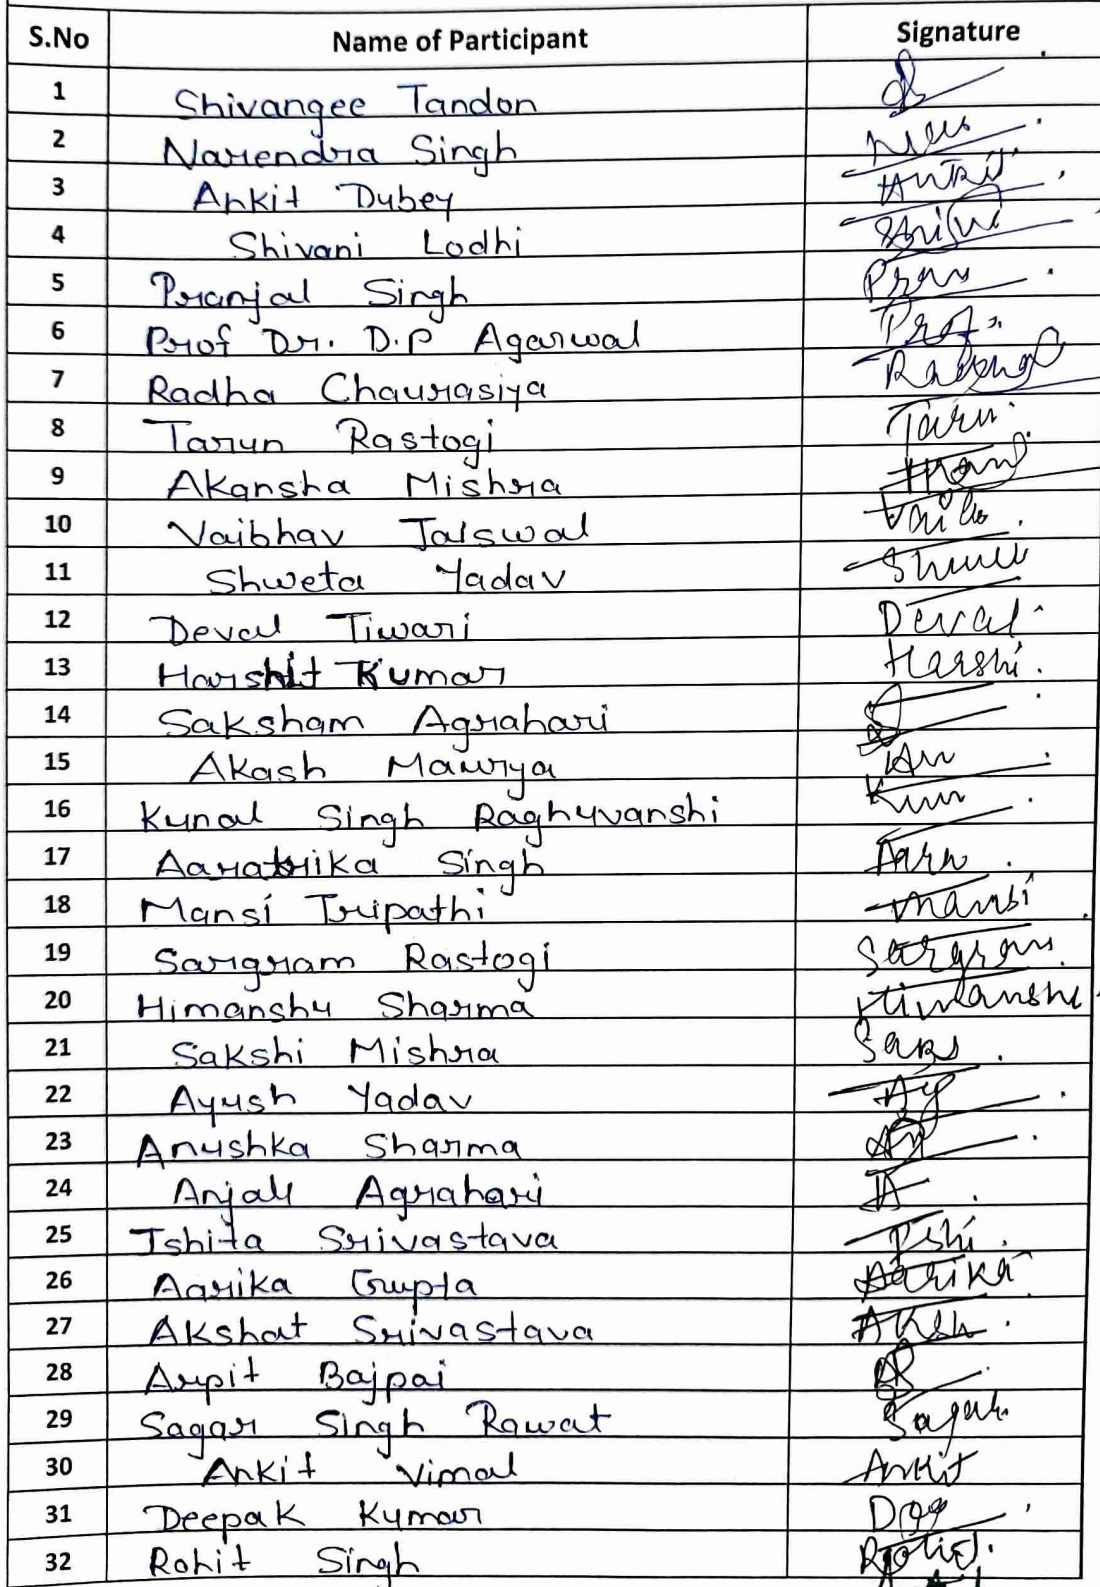 S.No Name of Participant Signature
1 Shivangee Tandon
2 Narendra Singh
3 Ankit Dubey Ankit
4 Shivani Lodhi
5 Pranjal Singh Pran
6 Prof Dr. D.P Agarwal Prof
7 Radha Chaurasiya
8 Tarun Rastogi Taru
9 Akansha Mishra
10 Vaibhav Jaiswal
11 Shweta Yadav
12 Deval Tiwari Deval
13 Harshit Kumar Harshi
14 Saksham Agrahari
15 Akash Maurya
16 Kunal Singh Raghuvanshi
17 Aaratrika Singh
18 Mansi Tripathi Mansi
19 Sargram Rastogi Sargram
20 Himanshu Sharma Himanshu
21 Sakshi Mishra
22 Ayush Yadav Ay
23 Anushka Sharma
24 Anjali Agrahari
25 Ishita Srivastava Ishi
26 Aarika Gupta Aarika
27 Akshat Srivastava Aksh
28 Arpit Bajpai
29 Sagar Singh Rawat Sagar
30 Ankit Vimal Ankit
31 Deepak Kumar
32 Rohit Singh